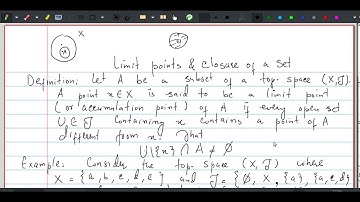 X
Limit points & closure of a set
Definition: Let A be a subset of a top. space (X, J)
A point x ∈ X is said to be a limit point
(or accumulation point) of A if every open set
U ∈ J containing x contains a point of A
different from x. That
U\{x} ∩ A ≠ ∅
Example: Consider the top. space (X, J) where
X = {a, b, c, d, e}, and J = {∅, X, {a}, {a, c, d}